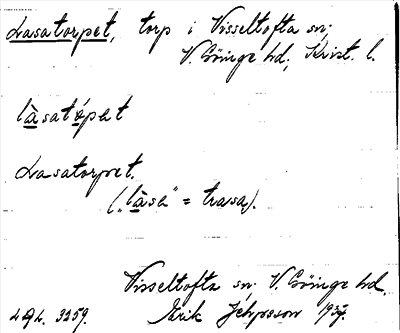 Lasatorpet, torp i Visseltofta sn.
V. Göinge hd, Krist. l.
làsatápet
Lasatorpet.
("lasa" = trasa).
Visseltofta sn. V. Göinge hd.
3259. Erik 1937.